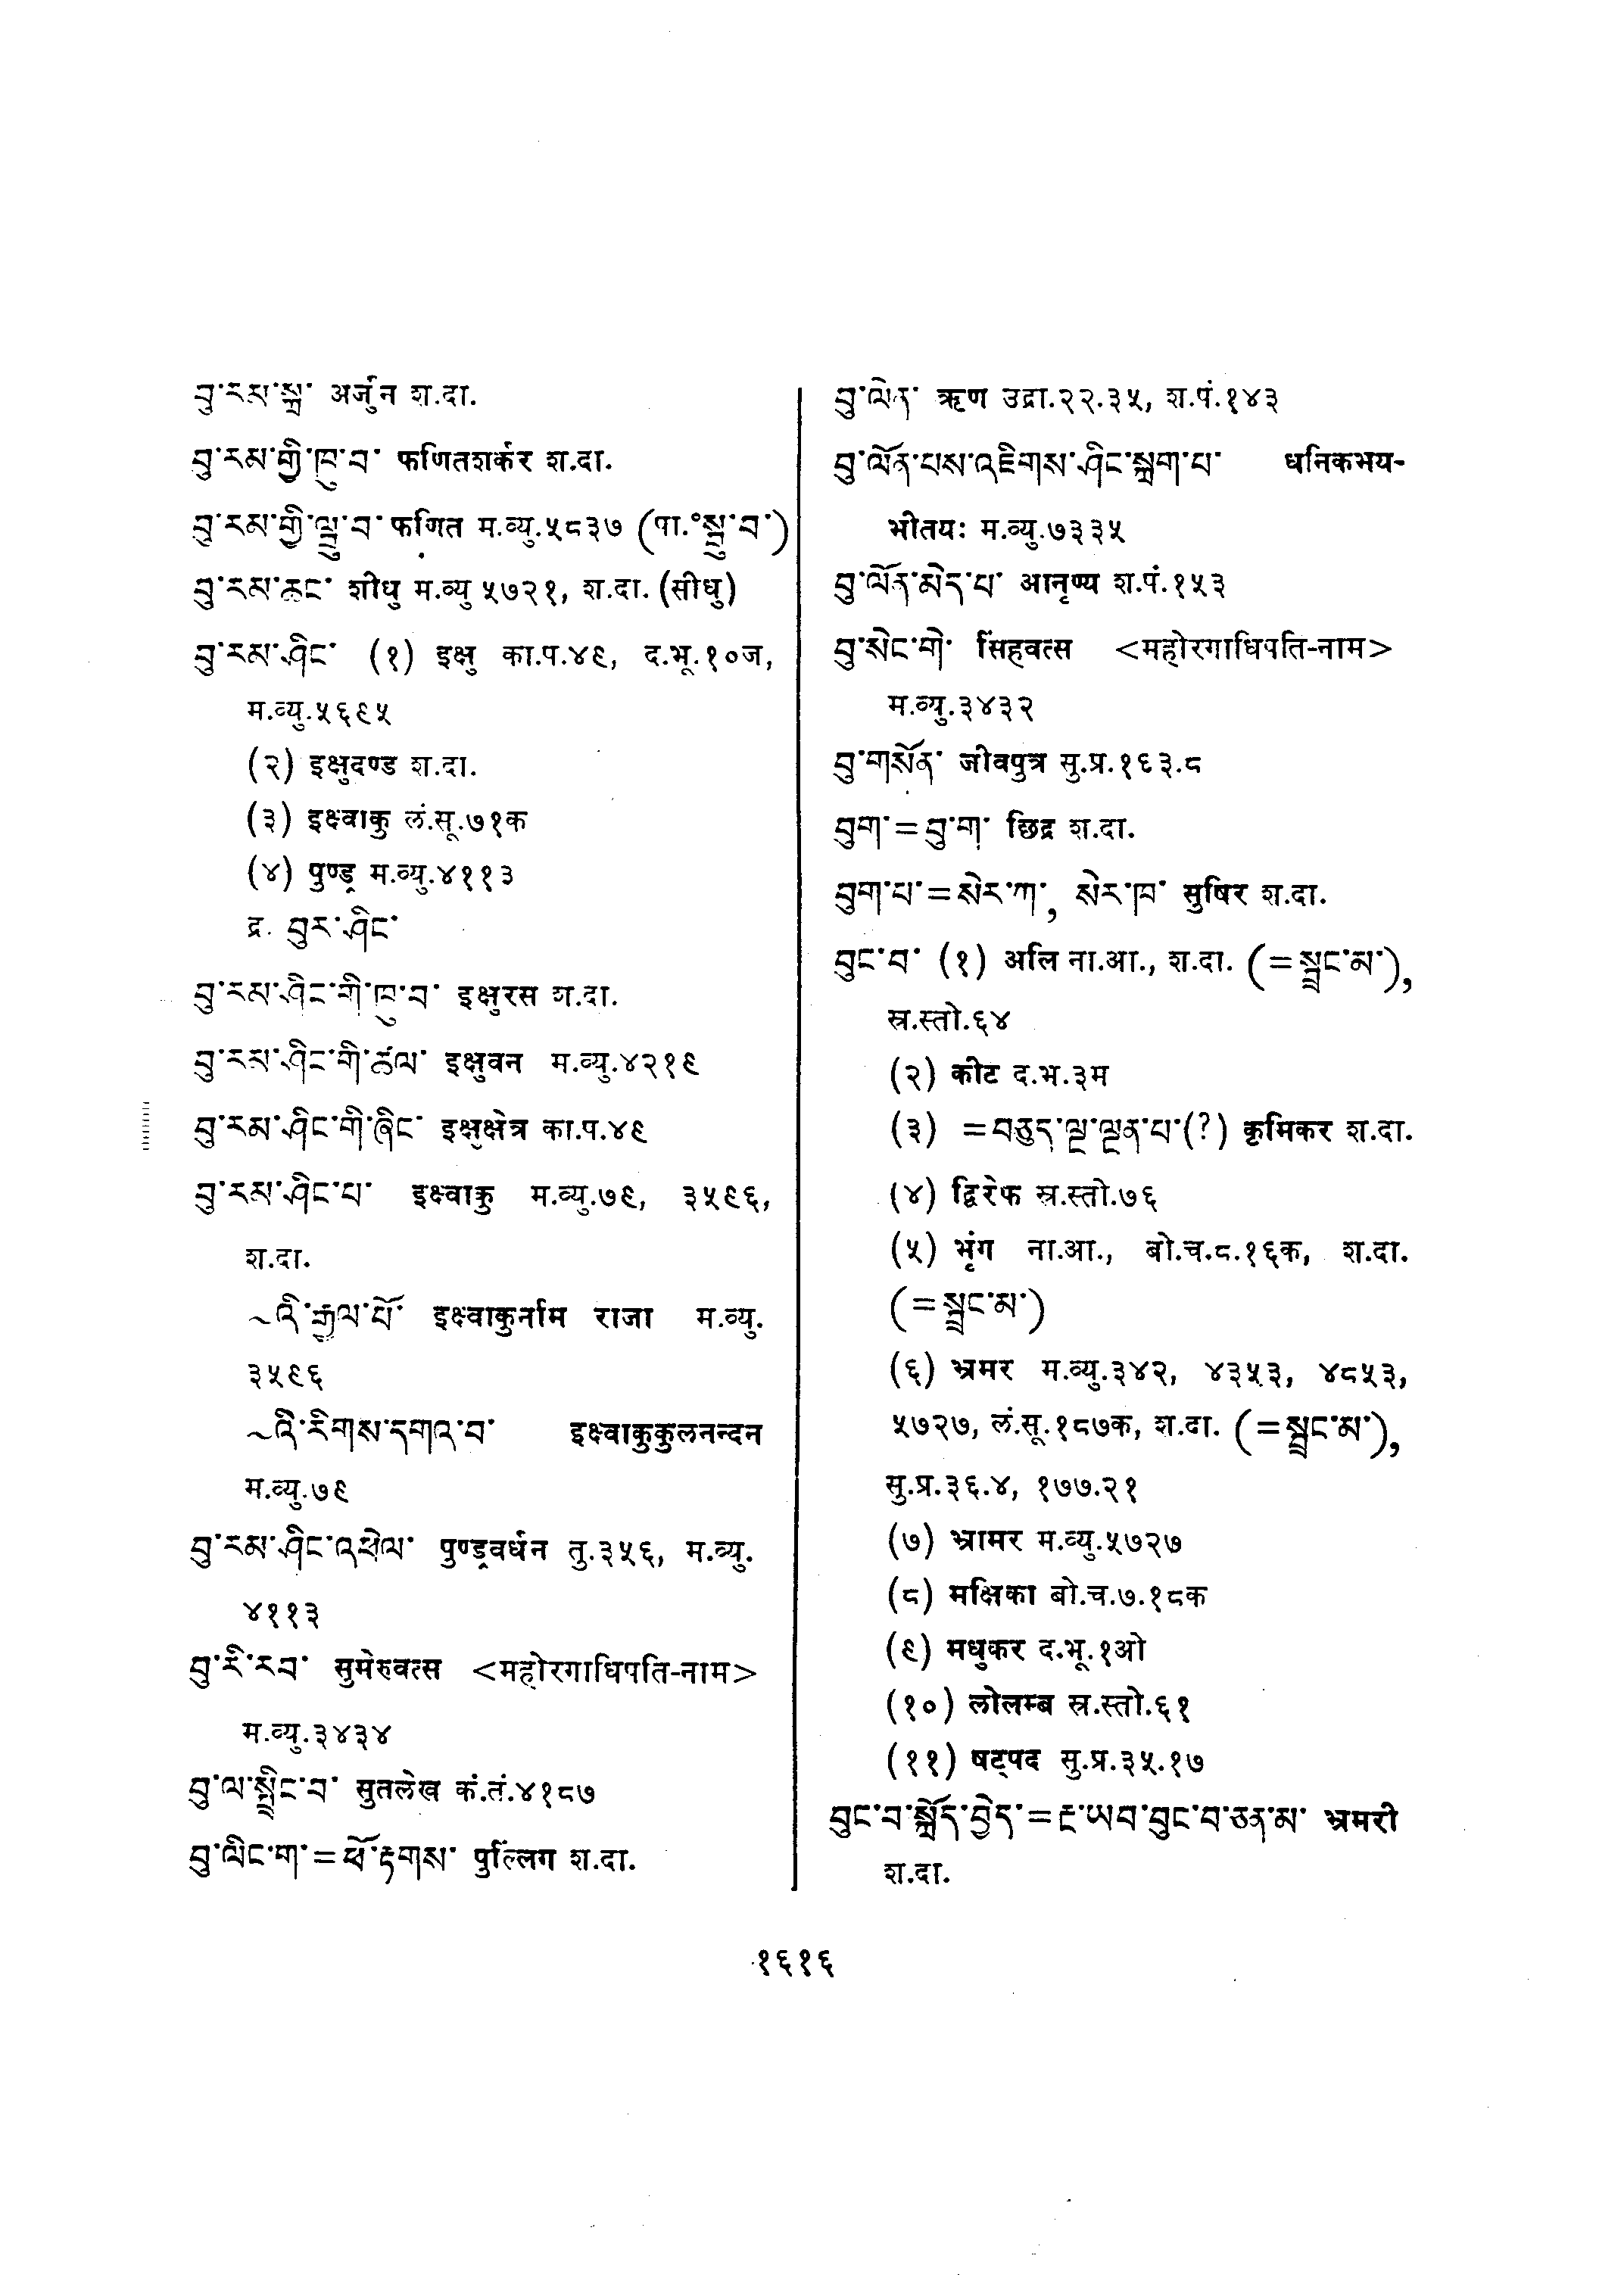 བུ་རམ་སྐྲ་ अर्जुन श.दा.
བུ་རམ་གྱི་ཁུ་བ་ फणितशर्कर श.दा.
བུ་རམ་གྱི་ལྡུ་བ་ फणित म.व्यु.५८३७ (पा.°སྡུ་བ་)
བུ་རམ་ཆང་ शीधु म.व्यु ५७२१, श.दा. (सीधु)
བུ་རམ་ཤིང་ (१) इक्षु का.प.४९, द.भू.१०ज,
म.व्यु.५६९५
(२) इक्षुदण्ड श.दा.
(३) इक्ष्वाकु लं.सू.७१क
(४) पुण्ड्र म.व्यु.४११३
द्र. བུར་ཤིང་
བུ་རམ་ཤིང་གི་ཁུ་བ་ इक्षुरस श.दा.
བུ་རམ་ཤིང་གི་ཚལ་ इक्षुवन म.व्यु.४२१९
བུ་རམ་ཤིང་གི་ཞིང་ इक्षुक्षेत्र का.प.४९
བུ་རམ་ཤིང་པ་ इक्ष्वाकु म.व्यु.७९, ३५९६,
श.दा.
~འི་རྒྱལ་པོ་ इक्ष्वाकुर्नाम राजा म.व्यु.
३५९६
~འི་རིགས་དགའ་བ་ इक्ष्वाकुकुलनन्दन
म.व्यु.७९
བུ་རམ་ཤིང་འཕེལ་ पुण्ड्रवर्धन तु.३५६, म.व्यु.
४११३
བུ་རི་རབ་ सुमेरुवत्स <महोरगाधिपति-नाम>
म.व्यु.३४३४
བུ་ལ་སྤྲིང་བ་ सुतलेख कं.तं.४१८७
བུ་ལིང་ག་=ཕོ་རྟགས་ पुल्लिंग श.दा.
བུ་ལེན་ ऋण उद्रा.२२.३५, श.पं.१४३
བུ་ལོན་པས་འཇིགས་ཤིང་སྐྲག་པ་ धनिकभय-
भीतयः म.व्यु.७३३५
བུ་ལོན་མེད་པ་ आनृण्य श.पं.१५३
བུ་སེང་གེ་ सिंहवत्स <महोरगाधिपति-नाम>
म.व्यु.३४३२
བུ་གསོན་ जीवपुत्र सु.प्र.१६३.८
བུག་=བུ་ག་ छिद्र श.दा.
བུག་པ་=སེར་ཀ་, སེར་ཁ་ सुषिर श.दा.
བུང་བ་ (१) अलि ना.आ., श.दा. (=སྦྲང་མ་),
स्र.स्तो.६४
(२) कीट द.भ.३म
(३) =བཅུད་ལྔ་ལྔན་པ་(?) कृमिकर श.दा.
(४) द्विरेफ स्र.स्तो.७६
(५) भृंग ना.आ., बो.च.८.१६क, श.दा.
(=སྦྲང་མ་)
(६) भ्रमर म.व्यु.३४२, ४३५३, ४८५३,
५७२७, लं.सू.१८७क, श.दा. (=སྦྲང་མ་),
सु.प्र.३६.४, १७७.२१
(७) भ्रामर म.व्यु.५७२७
(८) मक्षिका बो.च.७.१८क
(९) मधुकर द.भू.१ओ
(१०) लोलम्ब स्र.स्तो.६१
(११) षट्पद सु.प्र.३५.१७
བུང་བ་སྐློད་བྱེད་=རྔ་ཡབ་བུང་བ་ཅན་མ་ भ्रमरी
श.दा.
१६१६